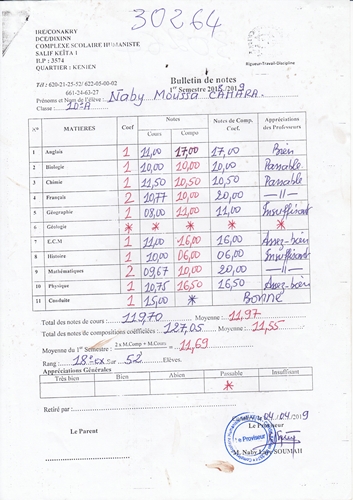 30264
IRE/CONAKRY
DCE/DIXINN
COMPLEXE SCOLAIRE HUMANISTE
SALIF KEÏTA I
B.P : 3574
QUARTIER : KENIEN
Rigueur-Travail-Discipline
Tél : 620-21-25-52/ 622-05-00-02
661-24-63-27
Bulletin de notes
1er Semestre 2018/2019
Prénoms et Nom de l'élève : Naby Moussa CAMARA
Classe : 10eA
N° MATIERES Coef Notes Notes de Comp. Coef. Appréciations des Professeurs
Cours Compo
1 Anglais 1 11,00 17,00 17,00 Bien
2 Biologie 1 10,00 10,00 10,00 Passable
3 Chimie 1 11,50 10,50 10,50 Passable
4 Français 2 10,77 10,00 20,00 —//—
5 Géographie 1 08,00 11,00 11,00 Insuffisant
6 Géologie * * * * *
7 E.C.M 1 11,00 16,00 16,00 Assez-bien
8 Histoire 1 10,00 06,00 06,00 Insuffisant
9 Mathématiques 2 09,67 10,00 20,00 —//—
10 Physique 1 10,75 16,50 16,50 Assez-bien
11 Conduite 1 15,00 * BONNE
Total des notes de cours : 119,70 Moyenne : 11,97
Total des notes de compositions coéfficiées : 127,05 Moyenne : 11,55
Moyenne du 1er Semestre : 2 x M.Comp + M.Cours = 11,69
Rang : 18e ex sur 52 Elèves.
Appréciations Générales
Très bien Bien Abien Passable Insuffisant
*
Retiré par :
Le 04/04/2019
Le Parent
Le Proviseur
le Proviseur
SOUMAH